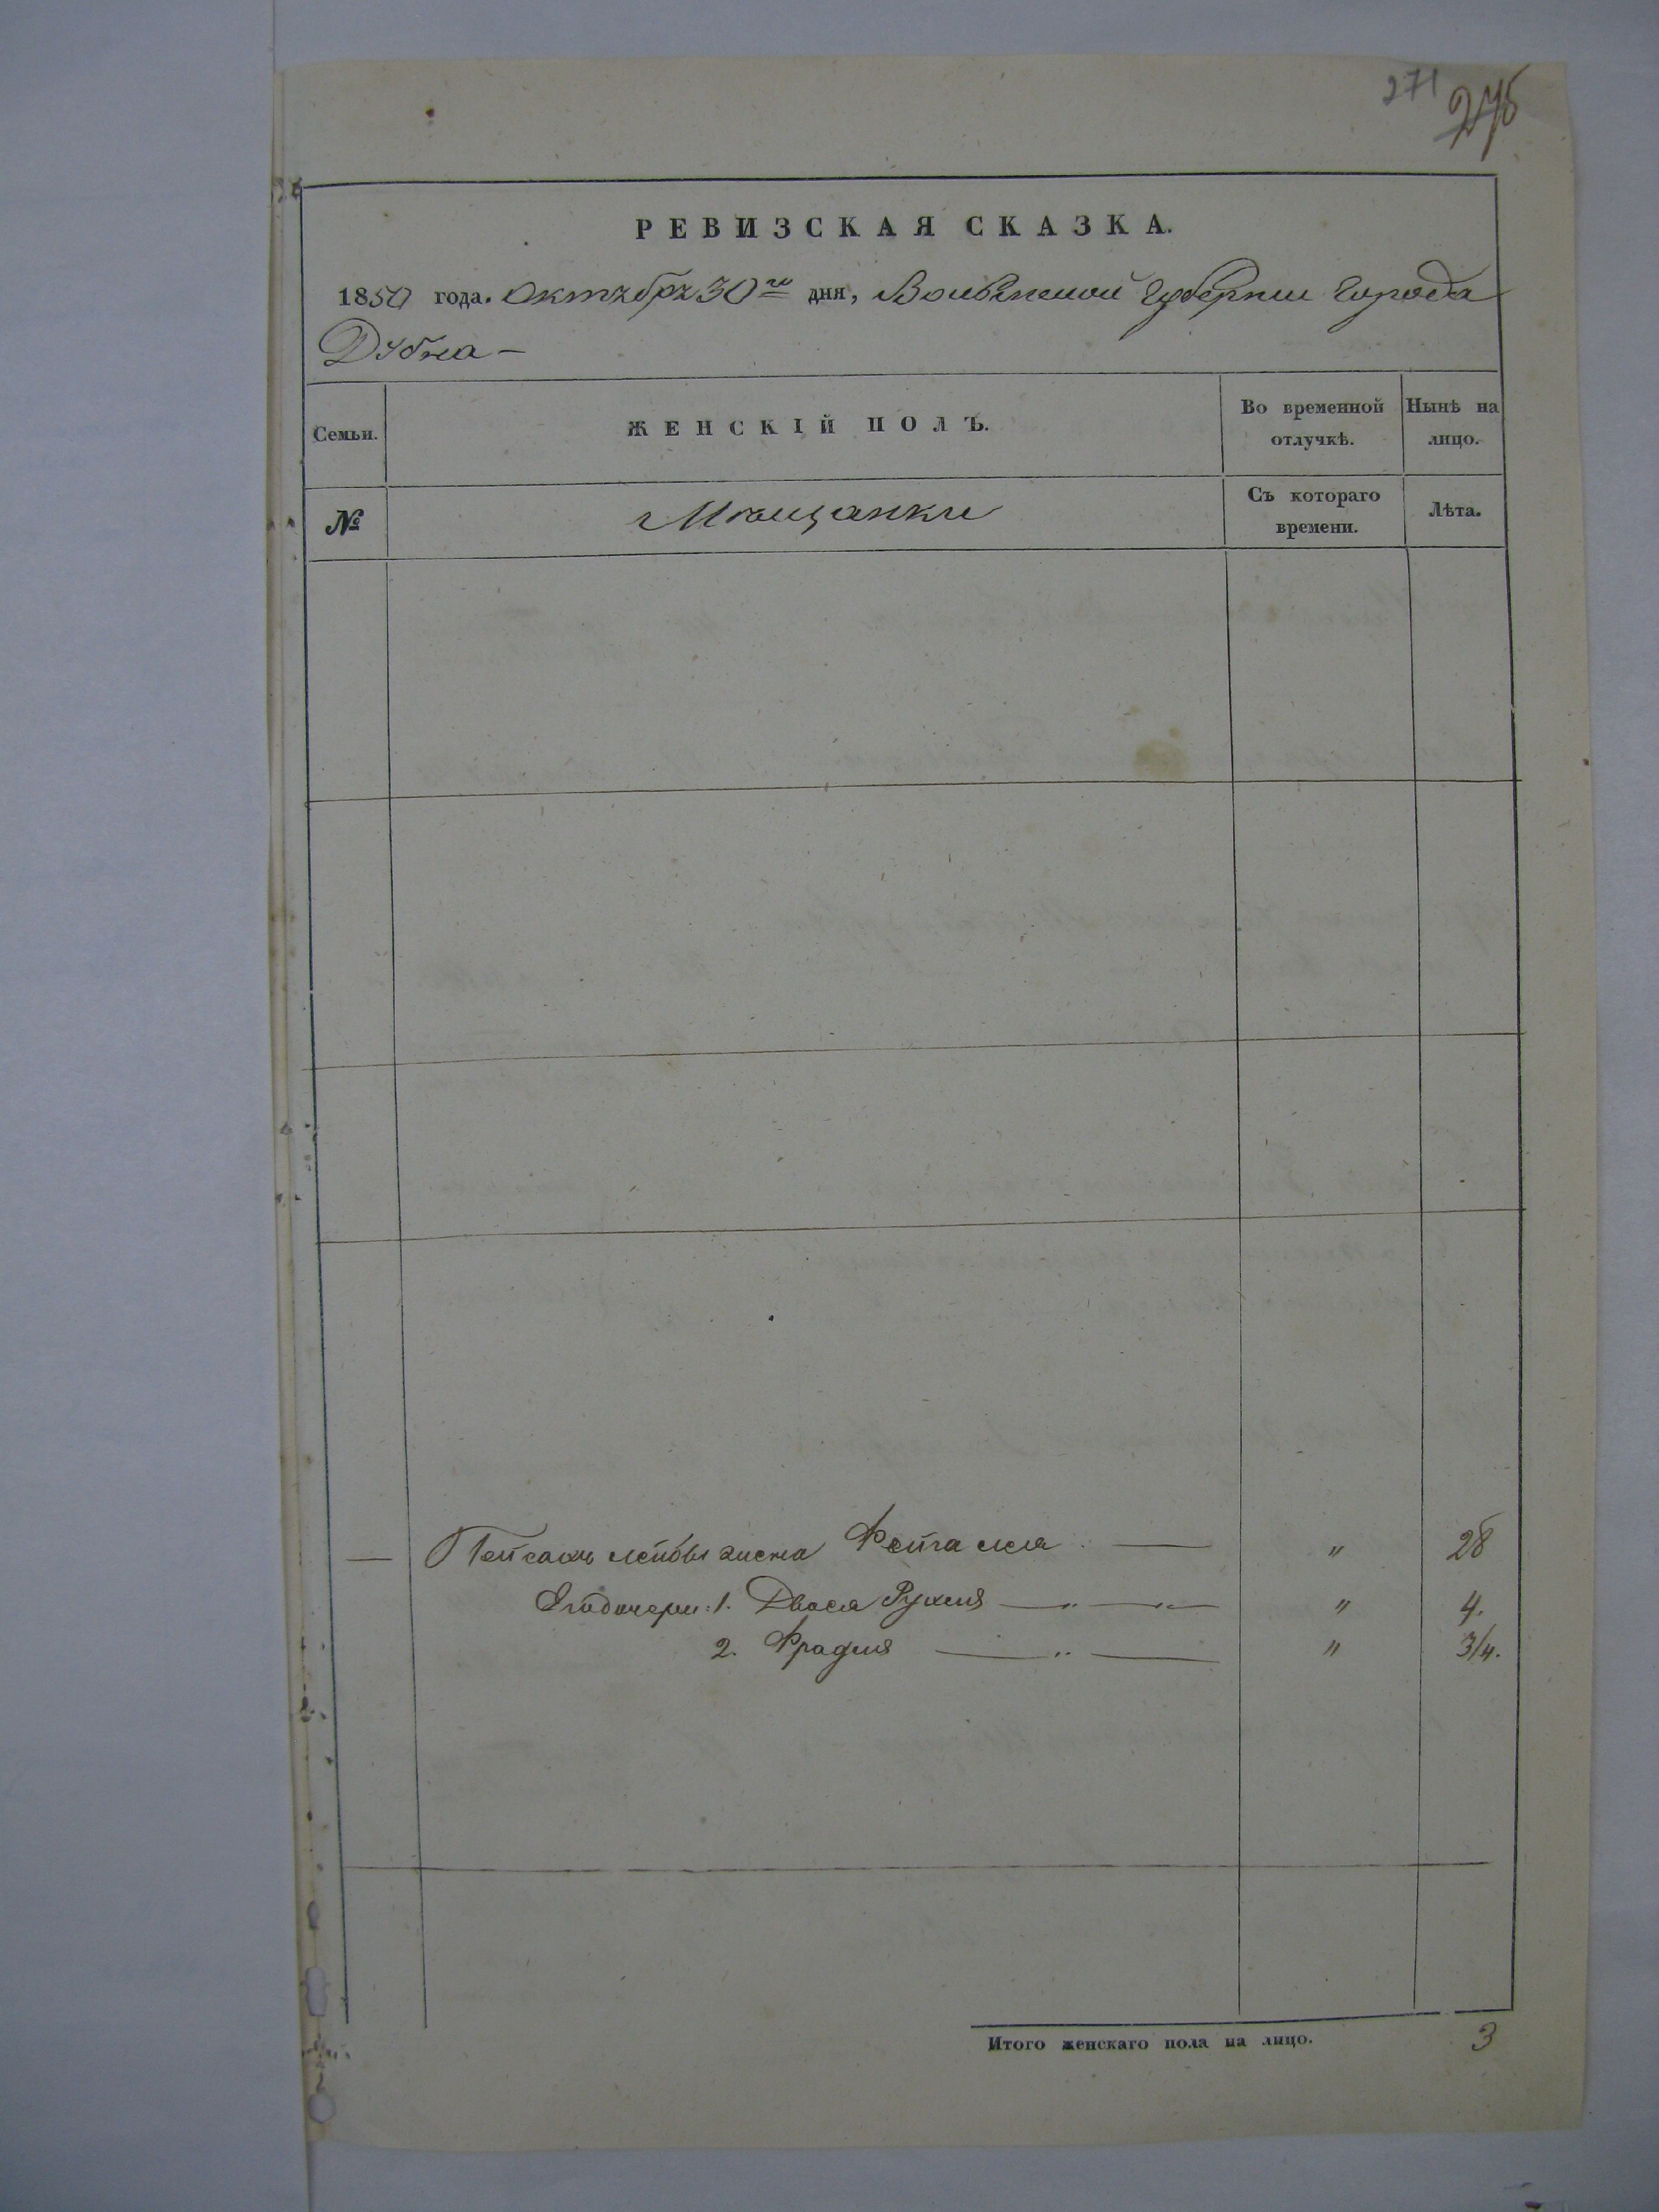 271
275
РЕВИЗСКАЯ СКАЗКА.
1850 года. Октября 30го дня, Волынской Губернии Города
Дубна —
Семьи.
ЖЕНСКІЙ ПОЛЪ.
Во временной отлучкѣ.
Нынѣ на лицо.
№
Мѣщанки
Съ котораго времени.
Лѣта.
— Лейбы жена Фейга — " 28
Его дочери: 1. Двося Рухля — " — " 4.
2. Фрадля — " — " 3/4.
Итого женскаго пола на лицо. 3